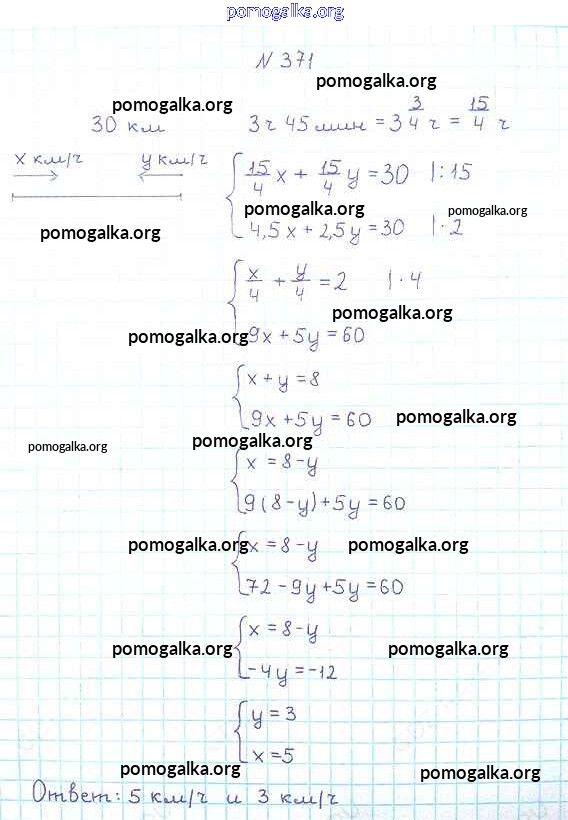 pomogalka.org
N 371
pomogalka.org
pomogalka.org
30 км 3 ч 45 мин = 3 3/4 ч = 15/4 ч
x км/ч y км/ч
15/4 x + 15/4 y = 30 |:15
pomogalka.org pomogalka.org
4,5x + 2,5y = 30 |· 2
pomogalka.org
x/4 + y/4 = 2 | · 4
pomogalka.org
pomogalka.org 9x + 5y = 60
x + y = 8
9x + 5y = 60 pomogalka.org
pomogalka.org pomogalka.org
x = 8 - y
9(8 - y) + 5y = 60
pomogalka.org x = 8 - y pomogalka.org
72 - 9y + 5y = 60
x = 8 - y
pomogalka.org pomogalka.org
-4y = -12
y = 3
x = 5
pomogalka.org pomogalka.org
Ответ: 5 км/ч и 3 км/ч